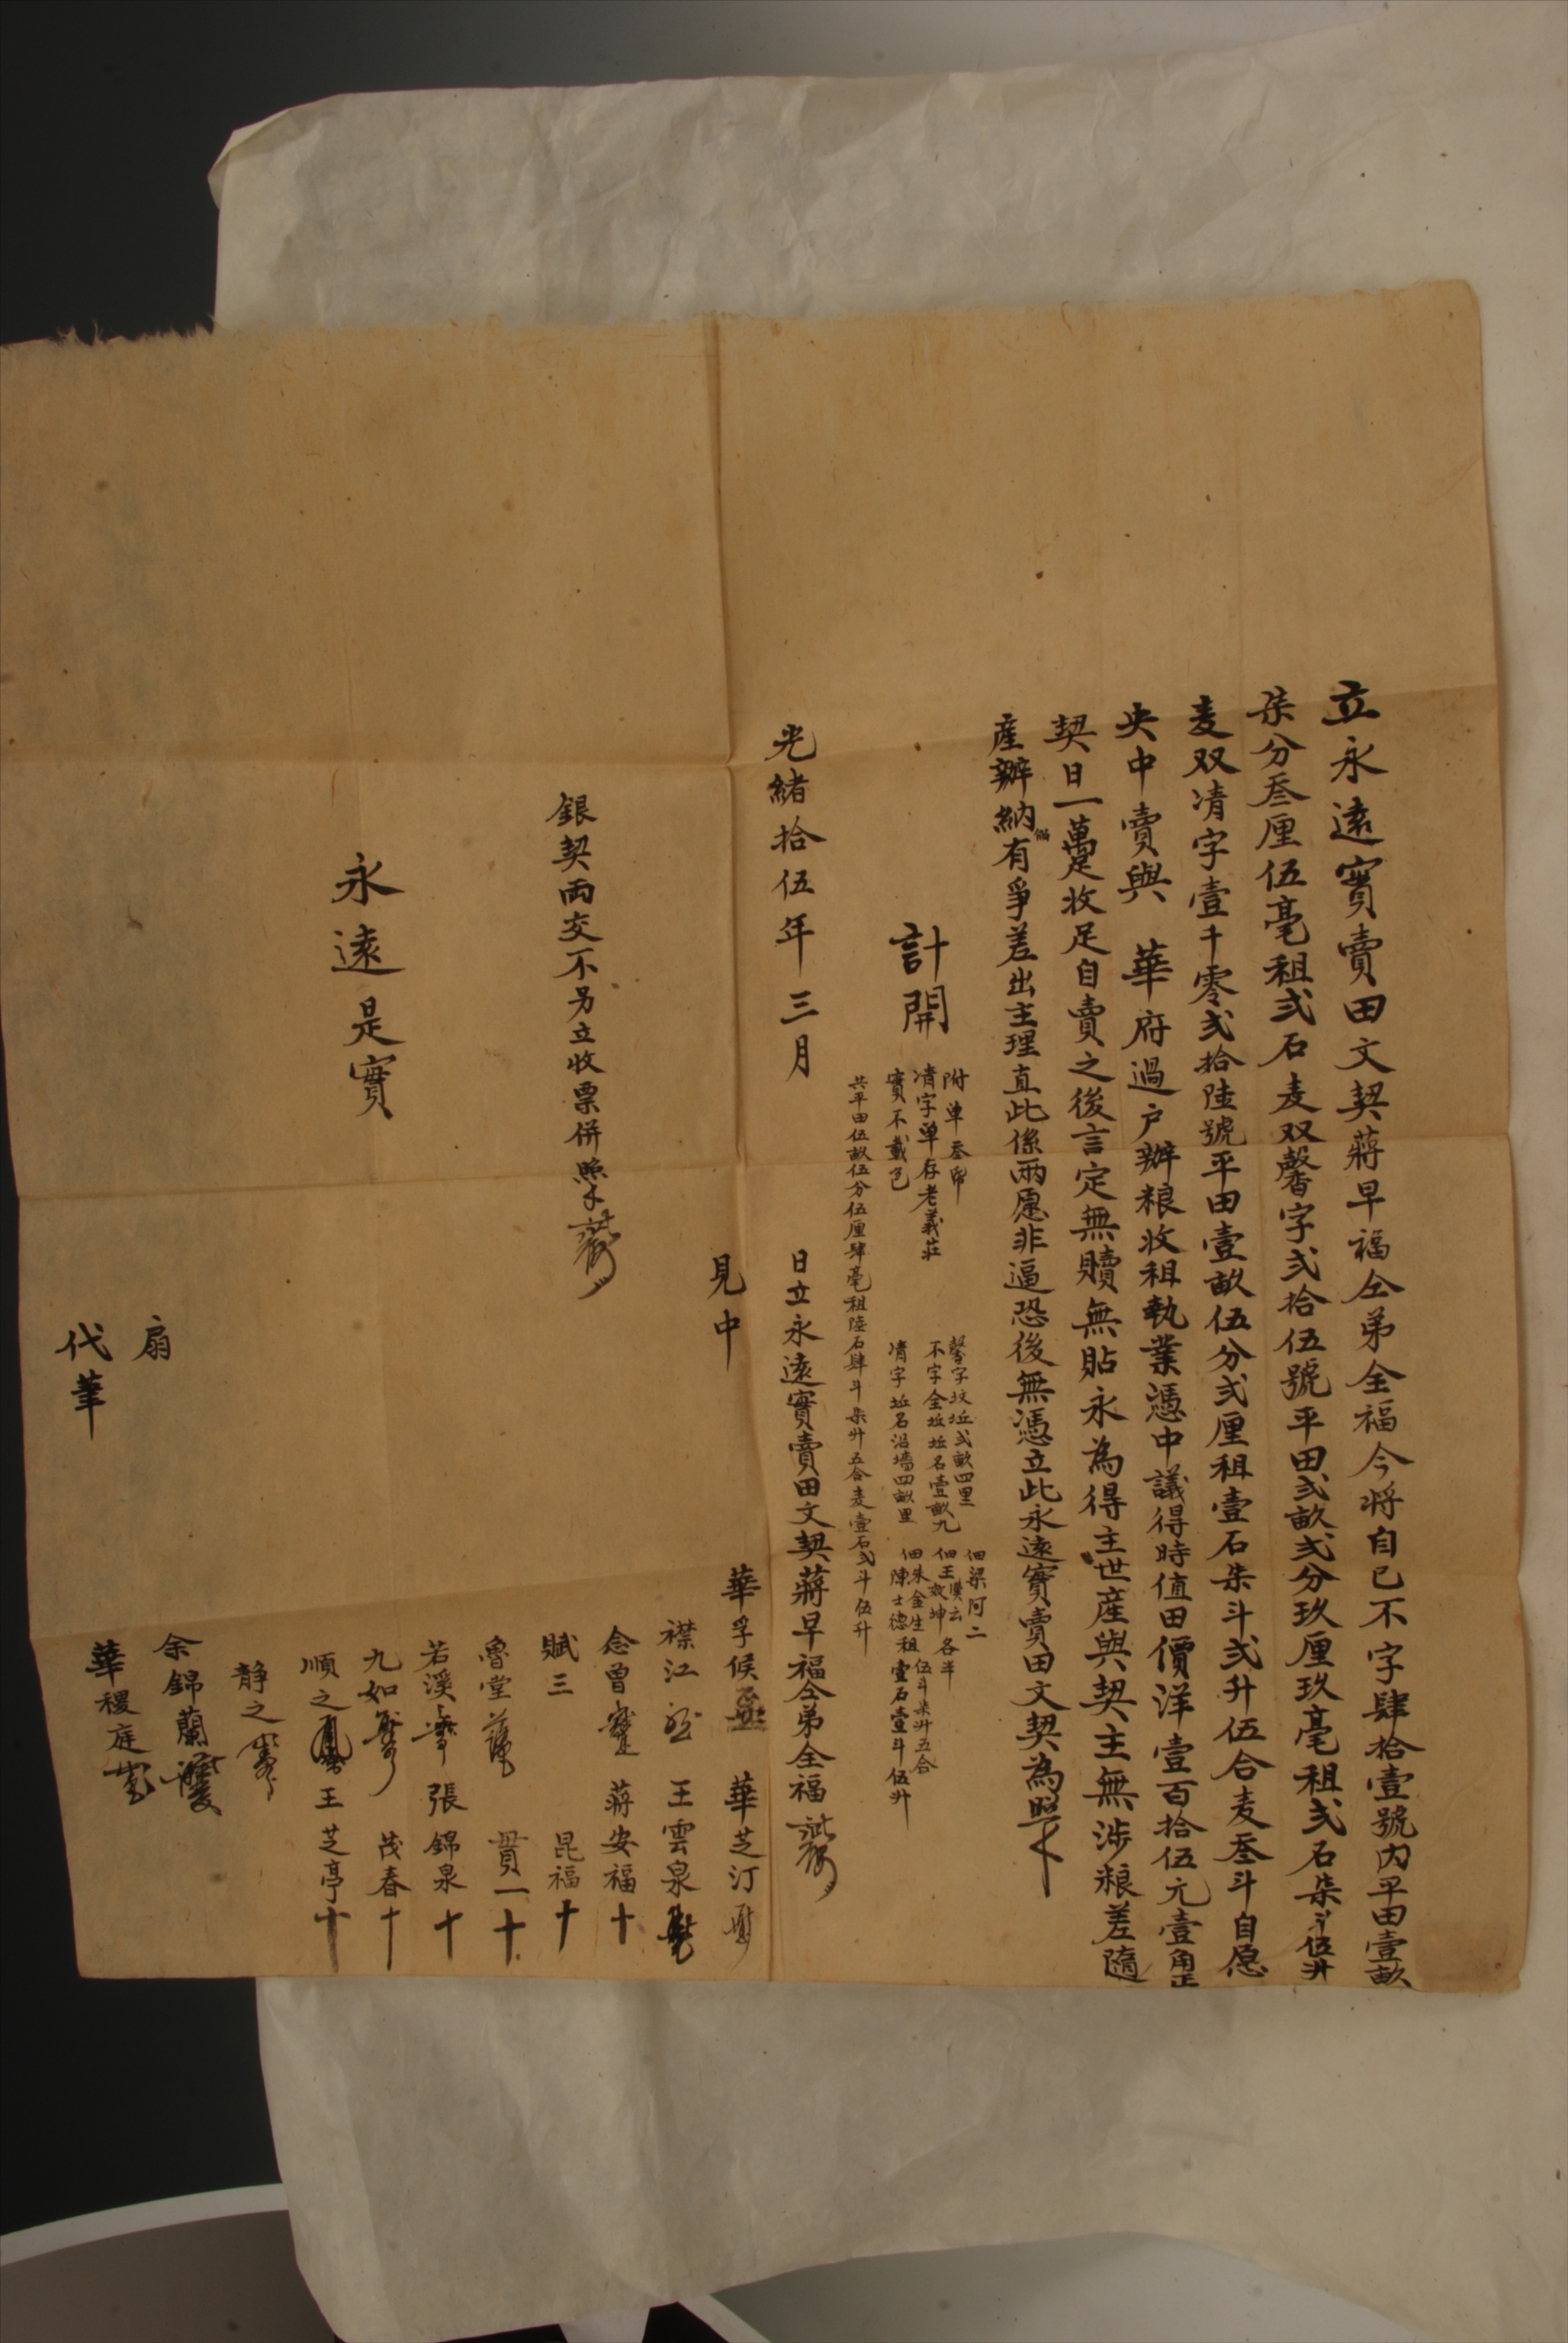 立永遠實賣田文契蔣早福仝弟全福今將自己不字肆拾壹號內平田壹畝
柒分叁厘伍毫租弍石麦双馨字弍拾伍號平田弍畝弍分玖厘玖毫租弍石柒斗伍升
麦双凊字壹千零弍拾陸號平田壹畝伍分弍厘租壹石柒斗弍升伍合麦叁斗自愿
央中賣與 華府過户辦粮收租執業憑中議得時值田價洋壹百拾伍元壹角正
契日一躉收足自賣之後言定無贖無貼永為得主世產與契主無涉粮差隨
產辦納倘有爭差出主理直此係兩愿非逼恐後無憑立此永遠實賣田文契為照
計開
附单叁帋
凊字单存老義莊
實不載邑
馨字坟坵弍畝四里
不字仝坵坵名壹畝九
凊字坵名沿墻四畝里
佃梁阿二
佃王漢云 各半
敘坤
佃朱金生 伍斗柒升五合
陳士德 租壹石壹斗伍升
共平田伍畝伍分伍厘肆毫租陸石肆斗柒升五合麦壹石弍斗伍升
光緒拾伍年三月 日立永遠實賣田文契蔣早福仝弟全福
見中 華孚候 華芝汀
襟江 王雲泉
念曾 蔣安福 十
賦三 昆福 十
魯堂 貫一 十
若溪 張錦泉 十
九如 茂春 十
順之 王芝亭 十
静之
銀契両交不另立收票併照
永遠是實
扇 余錦蘭
代筆 華稷庭